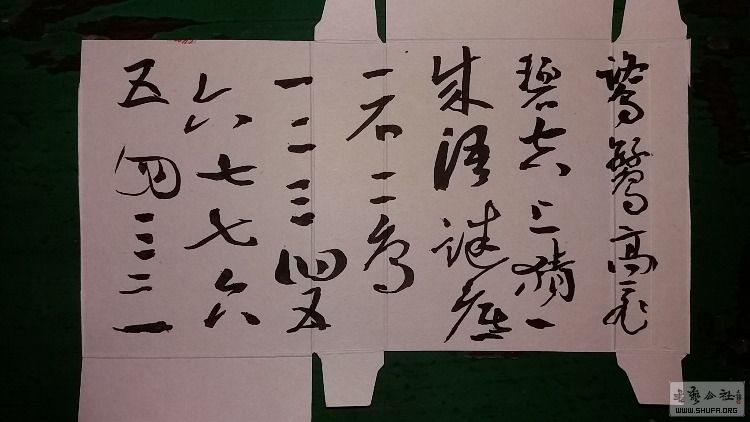 高飞
碧上猜一
成语谜底
一石二鸟
一二三四五
六七七六
五四三二一
书艺公社
WWW.SHUFA.ORG